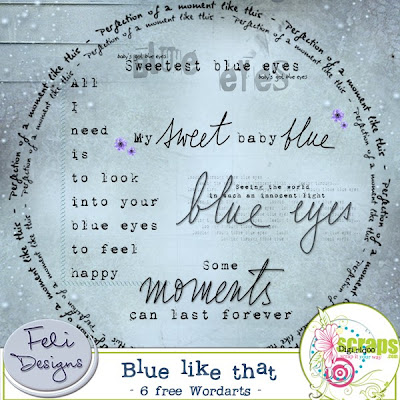 - Perfection of a moment like this - Perfection of a moment like this - Perfection of a moment like this
blue eyes
baby's got blue eyes
Sweetest blue eyes
baby's got blue eyes
All
I
need
is
to look
into your
blue eyes
to feel
happy
My sweet baby blue
Seeing the world
in such an innocent light
blue eyes
Some
moments
can last forever
Feli
Designs
Blue like that
- 6 free Wordarts -
Scraps.com
Digi